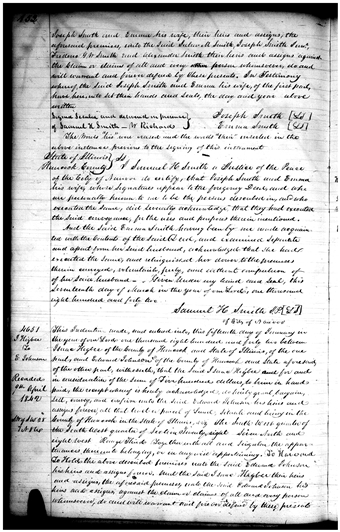 Joseph Smith and Emma his wife, their heirs and assigns, the
aforesaid premises, unto the Said Julia M Smith, Joseph Smith Junr.
Frederic G. W Smith and Alexander Smith their heirs and assigns against
the Claim or claims of all and every person whomsoever, do and
will warrant and forever defend by these presents. In Testimony
whereof, the Said Joseph Smith and Emma his wife, of the first part,
have hereunto set their hands and Seals, the day and year above
written
Signed Sealed and delivered in presence
of Samuel H. Smith W Richards
Joseph Smith [LS]
Emma Smith [LS]
above instance previous to the signing of this instrument
State of Illinois
Hancock County } I Samuel H. Smith a Justice of the Peace
of the City of Nauvoo do certify, that Joseph Smith and Emma
his wife whose signatures appear to the foregoing Deed, and who
are personally known to me to be the persons described in, and who
executed the Same, did severally acknowledge that they had executed
the Said conveyance, for the uses and purposes therein mentioned.
And the Said Emma Smith having been by me made acquain-
ted with the Contents of the Said Deed, and examined Separate
and apart from her Said husband, acknowledged that She had
executed the Same, and relinquished her dower to the premises
therein conveyed, voluntarily, freely, and without compulsion of
of her Said husband. Given under my hand and seal, this
Seventeenth day of March in the year of our Lord, one thousand
eight hundred and forty two
Samuel H. Smith J.P. [LS]
of City of Nauvoo
4681
I Higbee
To
E Johnson
Recorded
April
1842
This Indenture, made, and entered into, this fifteenth day of January in
the year of our Lord one thousand eight hundred and forty two between
Isaac Higbee of the County of Hancock and State of Illinois, of the one
part, and Edward Johnson of the County of Hancock and State aforesaid,
of the other part, witnesseth, that the Said Isaac Higbee and for and
in consideration of the Sum of Five hundred dollars, to him in hand
paid, the receipt whereof is hereby acknowledged,
sell, convey, and confirm unto the Said Edward Johnson his heirs and
assigns forever, all that tract or parcel of land, situate and being in the
County of Hancock in the State of Illinois, viz The South West quarter of
the South West quarter of Section Seventy, eight Seven North and
eight West
To Have and
To Hold the above described premises unto the Said Edward Johnson
his heirs and assigns forever. And the Said Isaac Higbee their heirs
and assigns, the aforesaid premises, unto the Said Edward Johnson his
heirs and assigns against the Claim or claims of all and every person
whomsoever, do and will warrant and forever defend by these presents